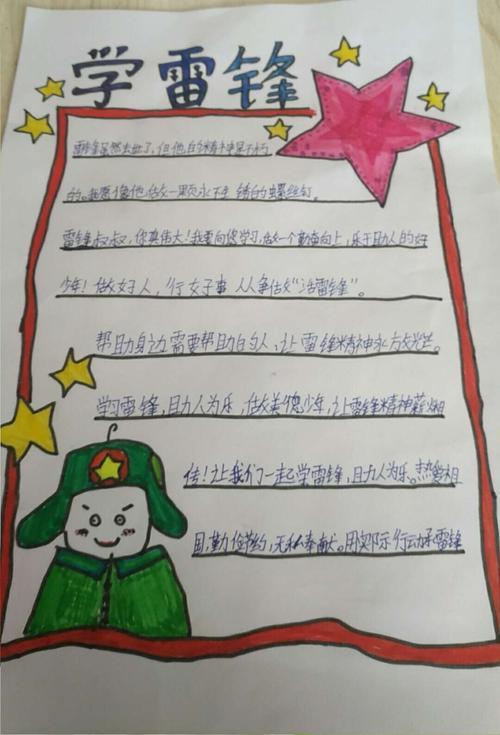 学雷锋
雷锋虽然去世了,但他的精神是不朽
的。我愿像他做一颗永不生锈的螺丝钉。
雷锋叔叔,你真伟大!我要向您学习,做一个勤奋向上,乐于助人的好
少年!做好人,行好事人人争做"活雷锋"。
帮助身边需要帮助的人,让雷锋精神永放光芒。
学习雷锋,助人为乐,做美德少年,让雷锋精神薪火相
传!让我们一起学雷锋,助人为乐。热爱祖
国,勤俭节约,无私奉献。用实际行动承雷锋